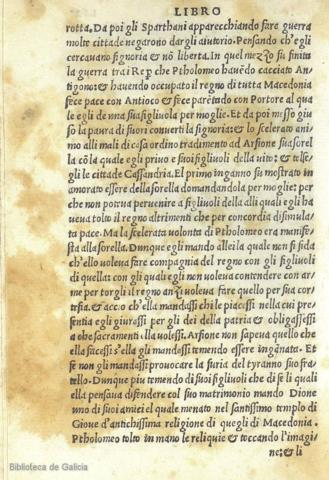 LIBRO
rotta. Da poi gli Sparthani apparecchiando fare guerra
molte cittade negarono dargli aiutorio. Pensando ch'egli
cercauano signoria & nõ libertà. In quel mezzo su finita
la guerra tra i Re, che Ptholomeo hauẽdo cacciato An-
tigono: & hauendo occupato il regno di tutta Macedonia
fece pace con Antioco & fece parẽtado con al qua
le egli de una sua figliuola per moglie. Et da poi messo giu
so la paura di fuori conuertì la signoria: & lo scelerato ani
mo alli mali di casa ordino tradimento ad Arsione sua sorel
la cõ la quale egli priuo e suoi figliuoli della uita: & tolse
gli le cittade Cassandria. El primo inganno su mostrato in
amorato essere della sorella domandandola per moglie: per
che non potrua peruenire a figliuoli della alli quali egli ha
ueua tolto il regno altrimenti che per concordia disimula
ta pace. Ma la scelerata uolontà di Ptholomeo era manife
sta alla sorella. Dunque egli mando alle i la quale non si fida
ch'ello uoleua fare compagnia del regno con gli figliuoli
di quella: con gli quali egli non uoleua contendere con ar-
me per torgli il regno anzi uoleua fare quello per sua cor-
tesia. & accio ch'ella mandassi chi le piacessi nella cui pre
sentia egli giurassi per gli dei della patria & obligassesi
a che sacramenti lla uolessi. Arsione non sapeua quello che
ella facessi s'ella gli mandassi temendo essere ingãnata. Et
se non gli mandassi prouocare la furia del tyranno suo fra
tello. Dunque piu temendo di suoi figliuoli che di se li quali
ella pensaua difendere col suo matrimonio mando Dione
uno di suoi amici el quale menato nel santissimo templo di
Gioue d'antichissima religione di quegli di Macedonia.
Ptholomeo tolto in mano le reliquie & toccando l'imagi
ne: & li
Biblioteca de Galicia